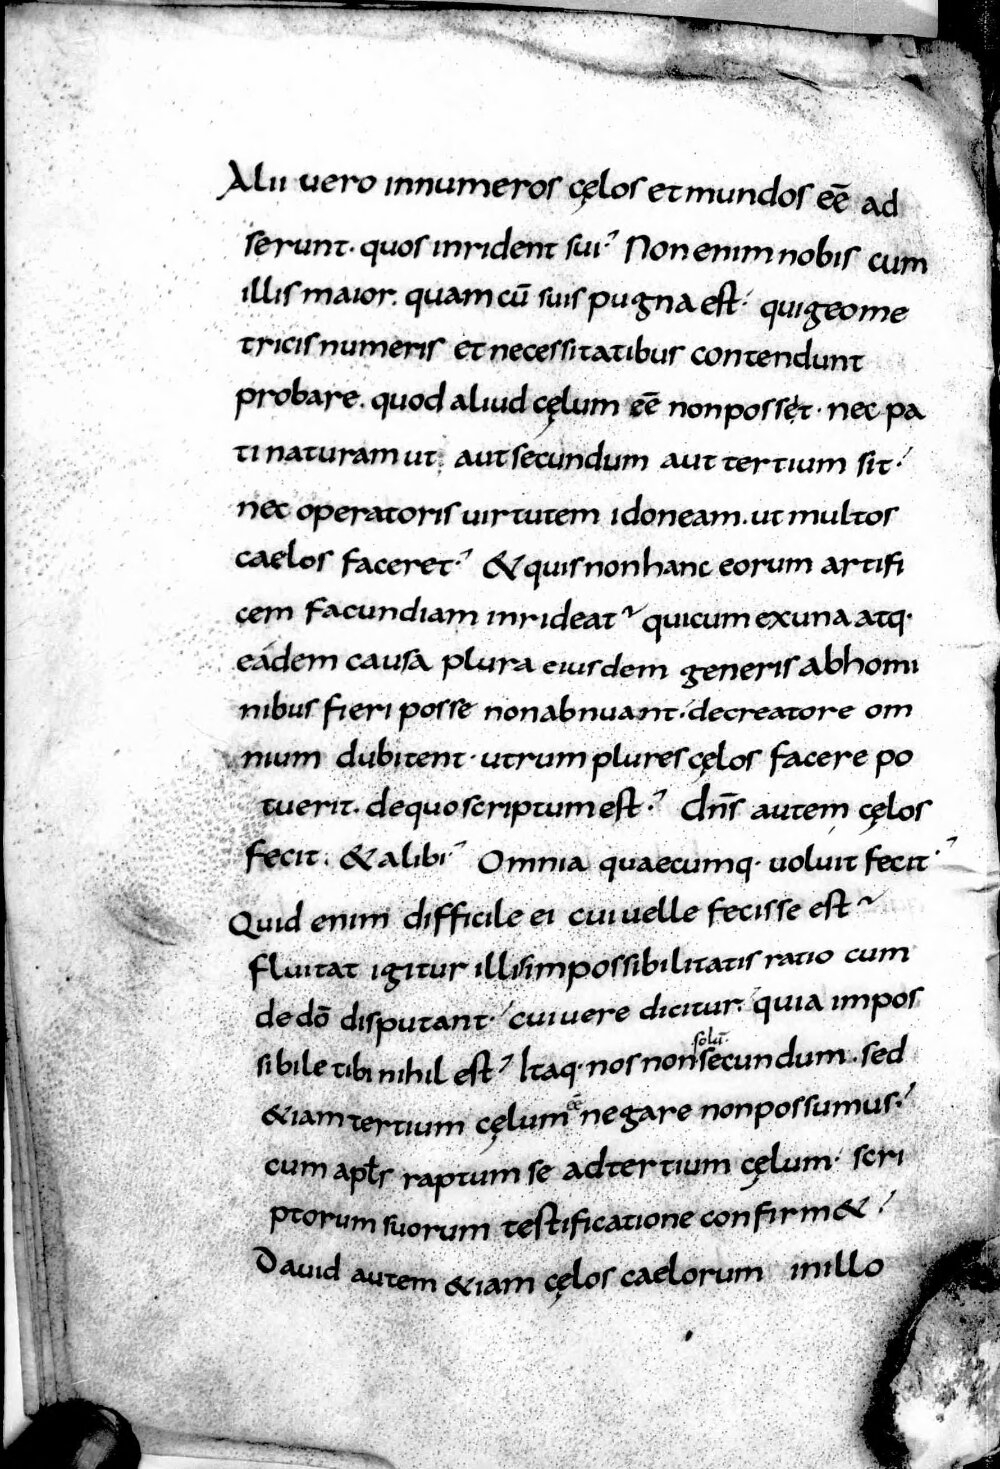 Alii uero innumeros cęlos et mundos eē ad
serunt· quos inrident sui? Non enim nobis cum
illis maior. quam cū suis pugna est· qui geome
tricis numeris et necessitatibus contendunt
probare. quod aliud cęlum eē non possęt· nec pa
ti naturam ut aut secundum aut tertium sit·
nec operatoris uirtutem idoneam. ut multos
caelos faceret? & quis non hanc eorum artifi
cem facundiam inrideat qui cum ex una atq·
eadem causa plura eiusdem generis ab homi
nibus fieri posse non abnuant· de creatore om
nium dubitent· utrum plures cęlos facere po
tuerit. de quo scriptum est·? dn̄s autem cęlos
fecit. & alibi? Omnia quaecumq· uoluit fecit·?
Quid enim difficile ei cui uelle fecisse est
fluitat igitur illis impossibilitatis ratio cum
de dō disputant· cui uere dicitur· quia impos
sibile tibi nihil est? Itaq· nos non solū secundum. sed
&iam tertium cęlum eē negare non possumus·
cum apłs raptum se ad tertium cęlum· scri
ptorum suorum testificatione confirm&
Dauid autem &iam cęlos caelorum in illo